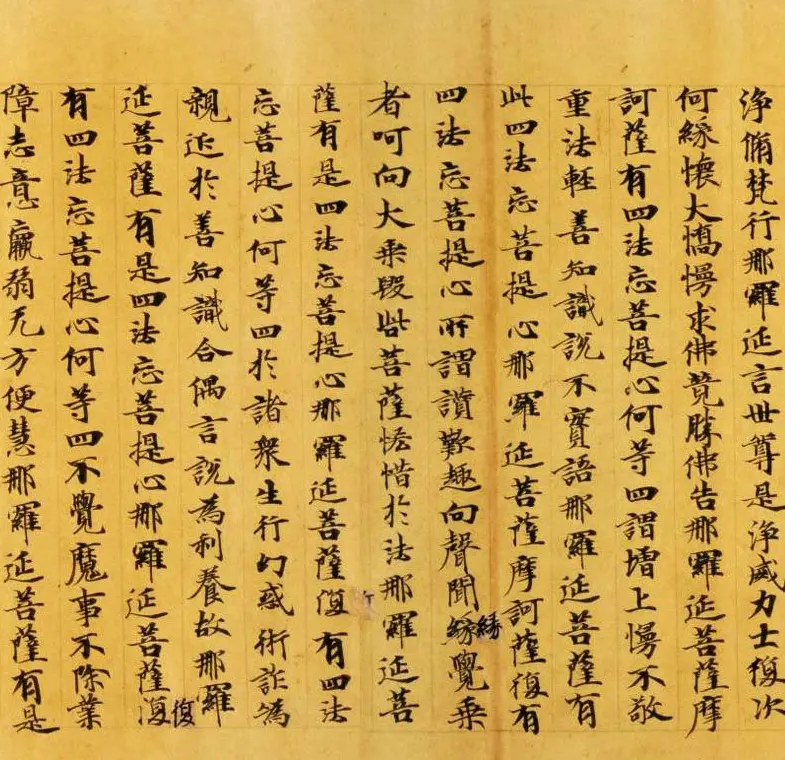 淨脩梵行那羅延言世尊是淨威力士復次
何緣懷大憍慢求佛竟勝佛告那羅延菩薩摩
訶薩有四法忘菩提心何等四謂增上慢不敬
重法輕善知識說不實語那羅延菩薩有
此四法忘菩提心那羅延菩薩摩訶薩復有
四法忘菩提心所謂讚歎趣向聲聞緣覺乘
緣
者呵向大乘毀呰菩薩悋惜於法那羅延菩
薩有是四法忘菩提心那羅延菩薩復有四法
忘菩提心何等四於諸衆生行幻惑術詐為
親近於善知識合偶言說為利養故那羅
延菩薩有是四法忘菩提心那羅延菩薩復
復
有四法忘菩提心何等四不覺魔事不除業
障志意羸弱无方便慧那羅延菩薩有是